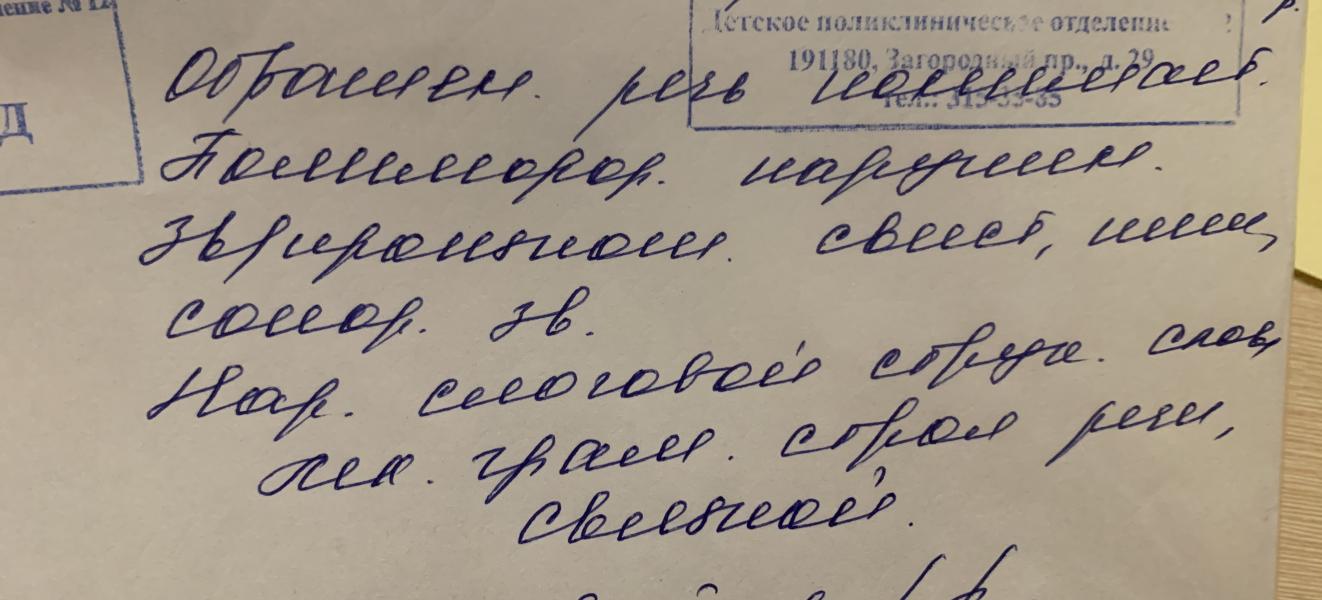 Детское поликлиническое отделение
191180, Загородный пр., д. 29
тел.: 315-33-85
Д
Обращен. речь понимает.
Полиморф. нарушен.
звукопроизнош. свист, шип,
сонор. зв.
Нар. слоговой структ. слов,
лек. грам. строя речи,
связной.